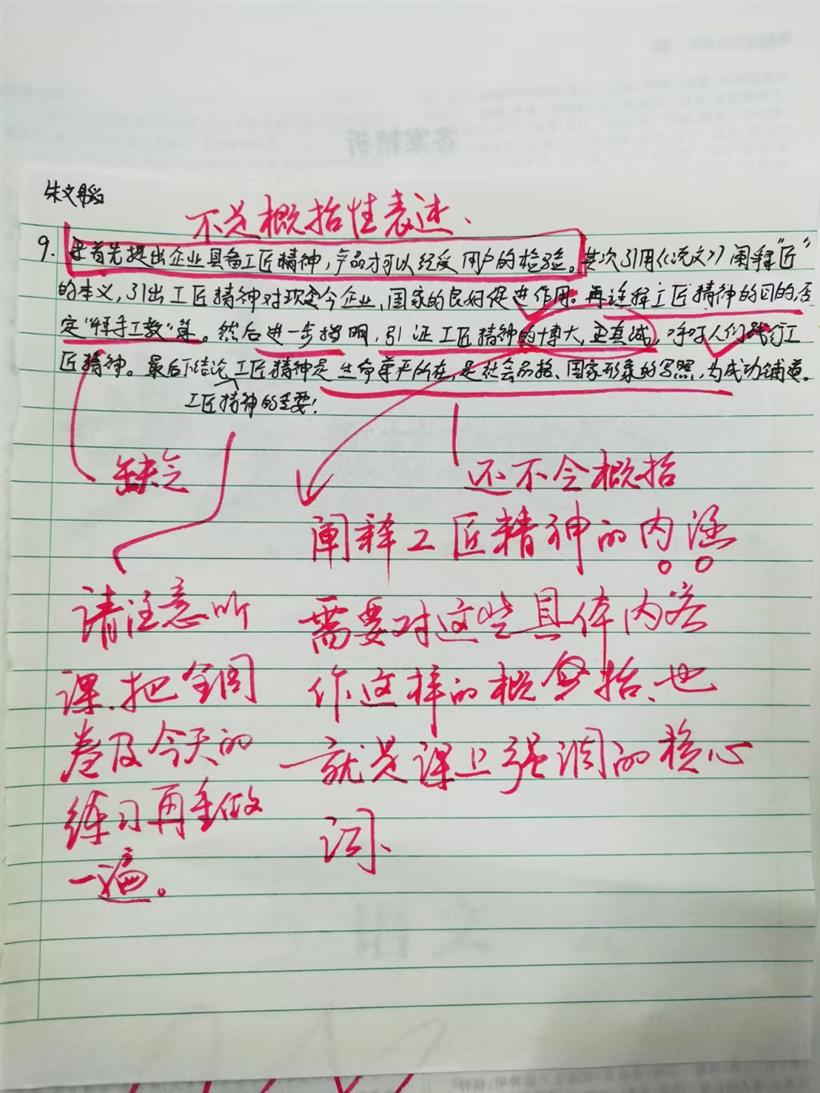 答案精析
朱文韬
不是概括性表述、
9. 首先提出企业具备工匠精神，产品才可以经受用户的检验。其次引用《说文》阐释“匠”
的本义，引出工匠精神对现今企业，国家的良好促进作用。再诠释工匠精神的目的，否
定“拜手工教”等。然后进一步指明，引证工匠精神的博大，至真诚，呼吁人们践行工
匠精神。最后下结论，工匠精神是生命尊严所在，是社会品格、国家形象的写照，为成功铺垫。
工匠精神的重要！
缺乏
还不会概括
阐释工匠精神的内涵
请注意听
需要对这些具体内容
课、把全国
作这样的概括、也
卷及今天的
就是课上强调的核心
练习再重做
词、
一遍。
语文